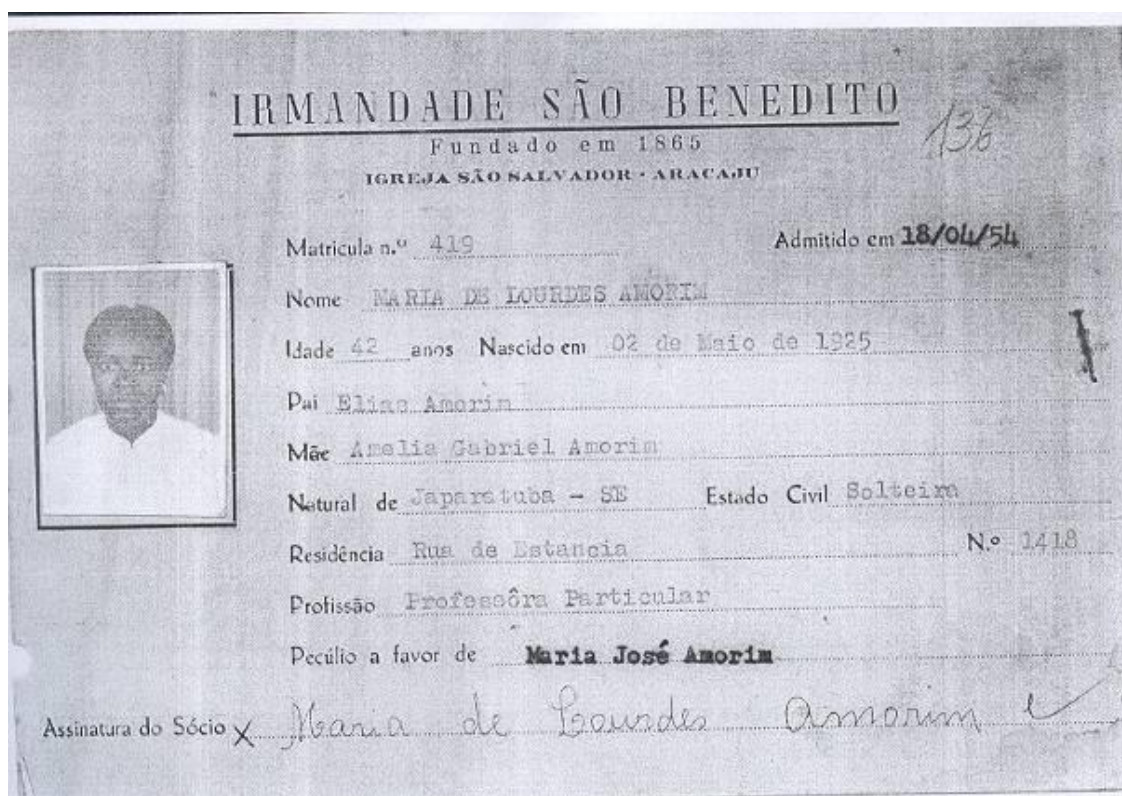 IRMANDADE SÃO BENEDITO
136
Fundado em 1865
IGREJA SÃO SALVADOR - ARACAJU
Matricula n.º 419 Admitido em 18/04/54
Nome MARIA DE LOURDES AMORIM
Idade 42 anos Nascido em 02 de Maio de 1925
Pai Elias Amorim
Mãe Amelia Gabriel Amorim
Natural de Japaratuba - SE Estado Civil Solteira
Residência Rua de Estancia N.º 1418
Profissão Professôra Particular
Pecúlio a favor de Maria José Amorim
Assinatura do Sócio X Maria de Lourdes Amorim